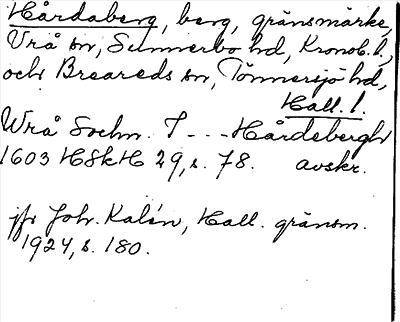 Hårdaberg, berg, gränsmärke,
Vrå sn, Sunnerbo hd, Kronob. l.,
och Breareds sn, Tönnersjö hd,
Hall. l.
Wrå Sochn. T - - - Hårdebergh
1603 HSkH 29, s. 78. avskr.
jfr Joh. Kalén, Hall. gränsm.
1924, s. 180.